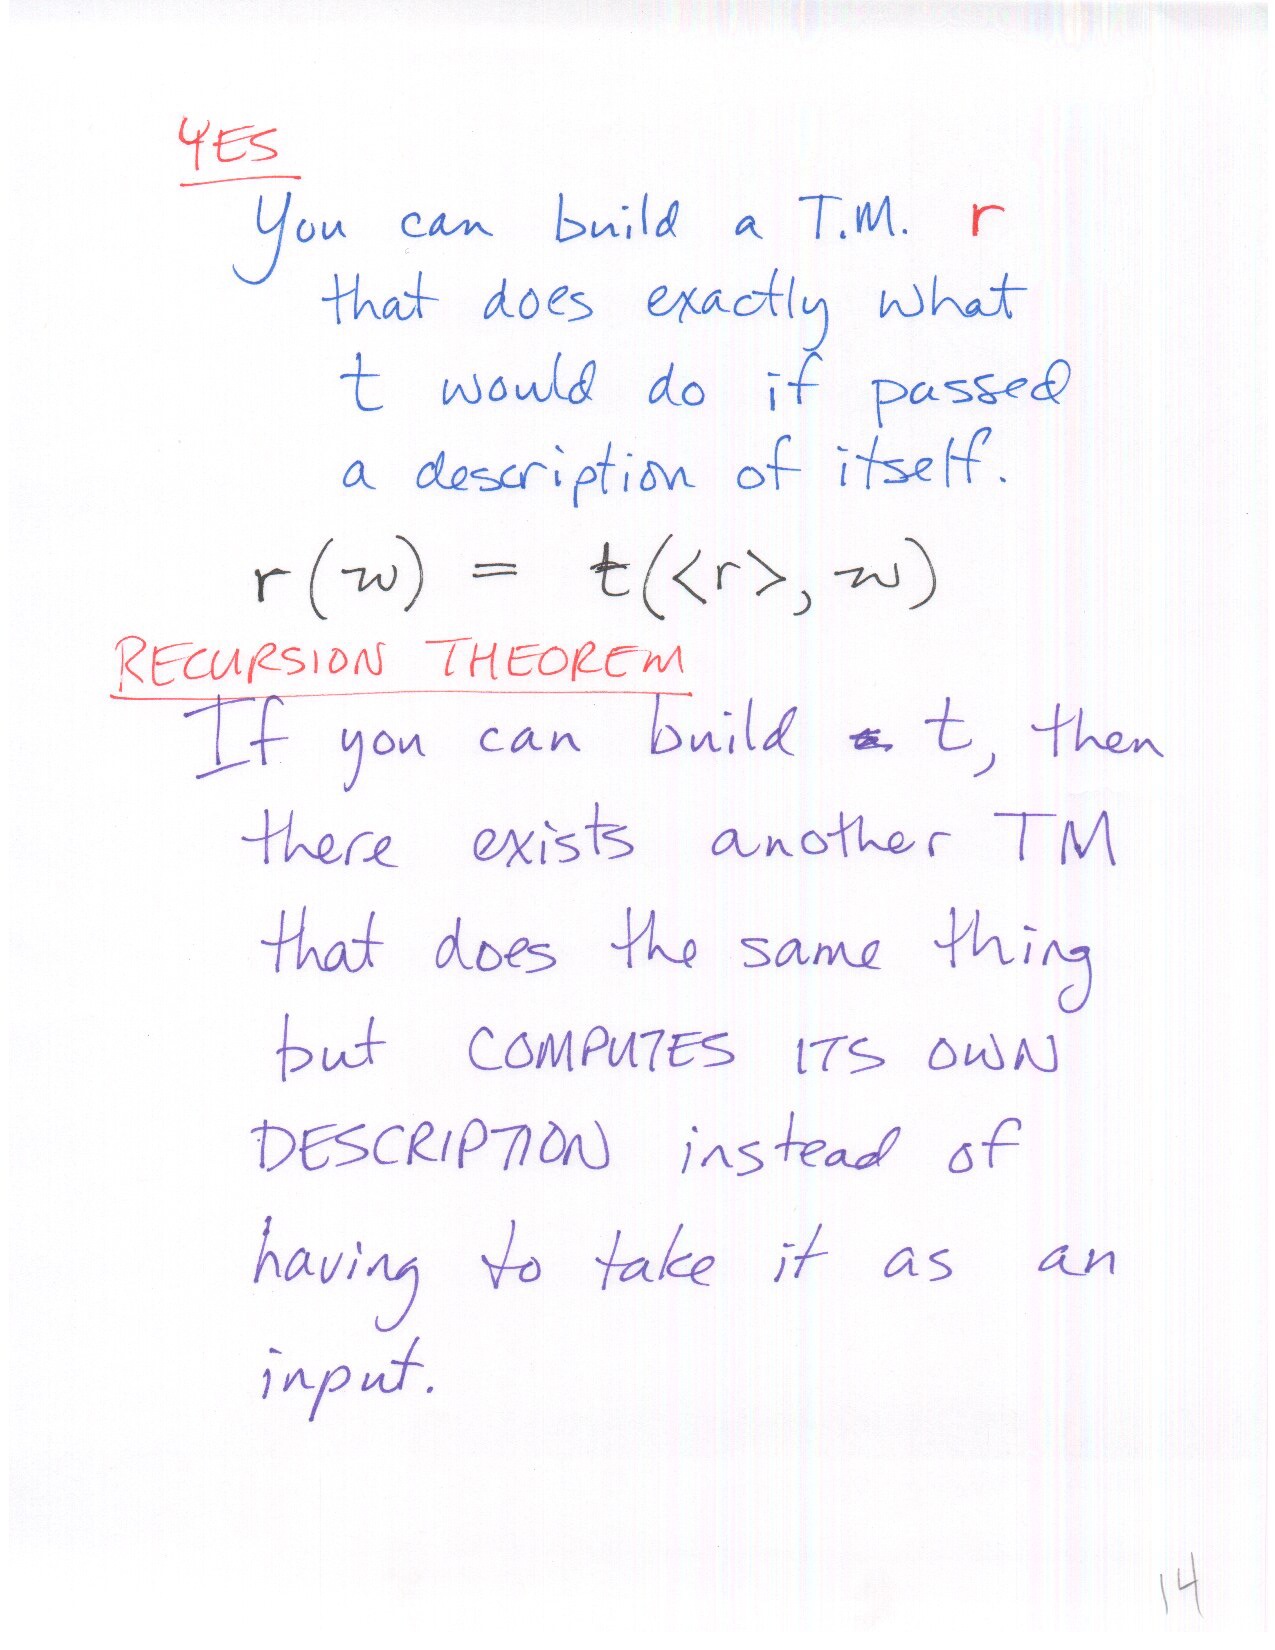 YES
You can build a T.M. r
that does exactly what
t would do if passed
a description of itself.
r(w) = t(<r>, w)
RECURSION THEOREM
If you can build t, then
there exists another TM
that does the same thing
but COMPUTES ITS OWN
DESCRIPTION instead of
having to take it as an
input.
14